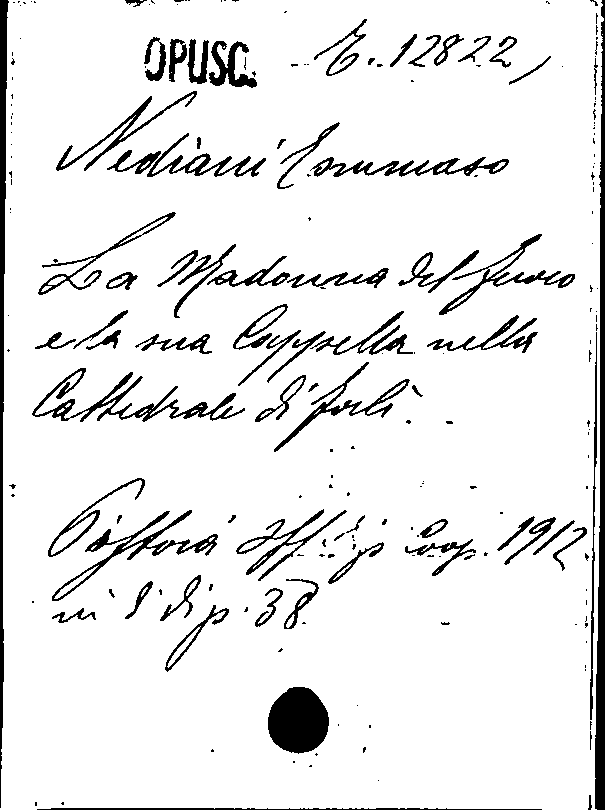 OPUSC. E. 12822,
Nediani Tommaso
La Madonna del fuoco
e la sua Cappella nella
Cattedrale di Forlì.
Off. Tip. Coop. 1912
in 8° di p. 38